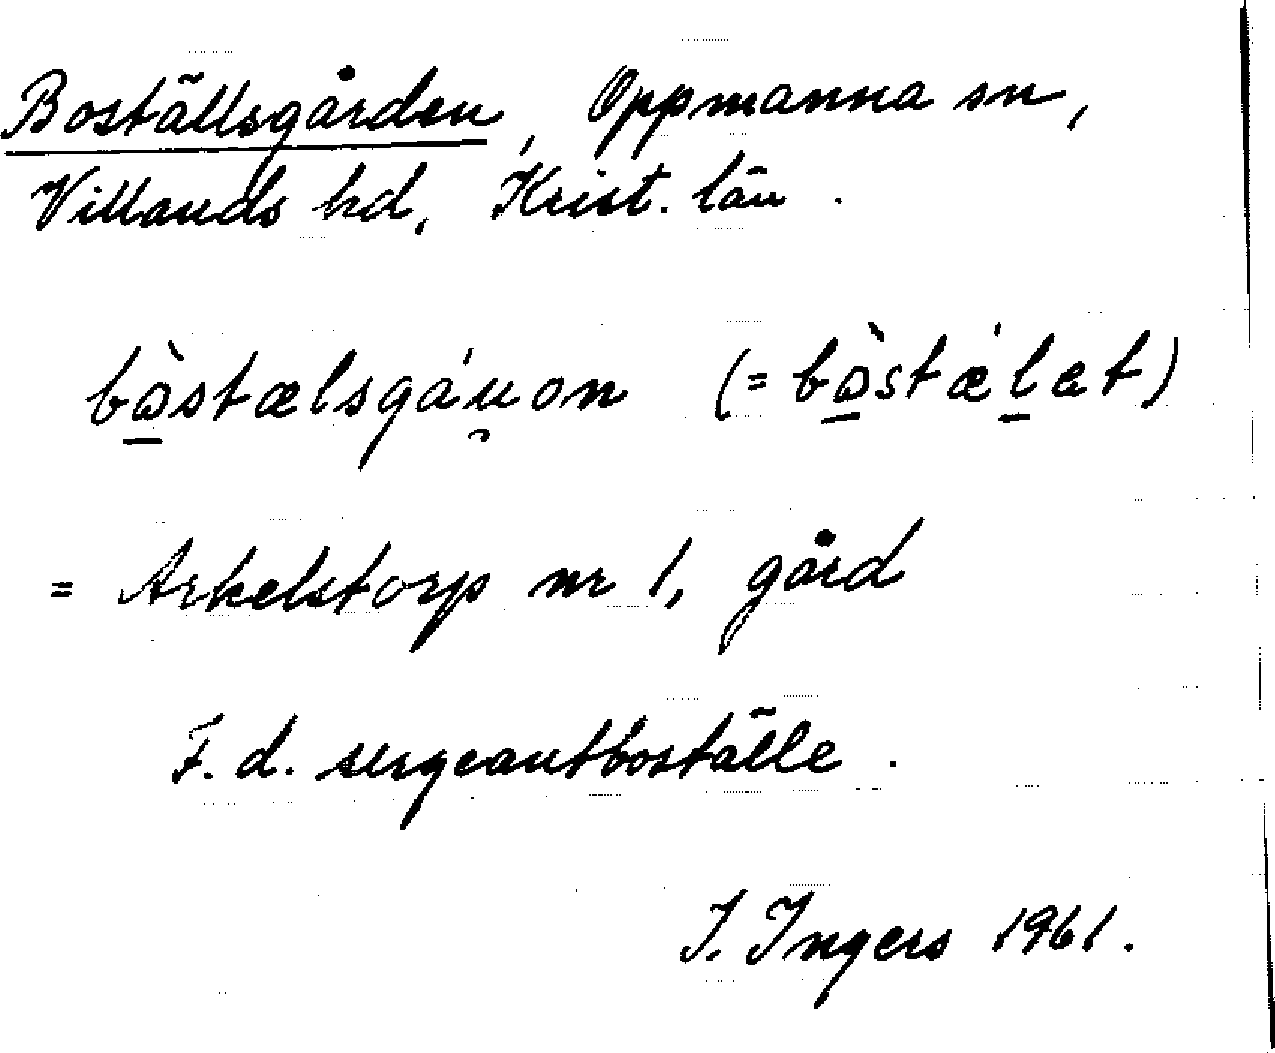 Boställsgården, Oppmanna sn,
Villands hd, Krist. län.
bòstælsgá́u̯on (= bòstǽlet)
= Arkelstorp nr 1, gård
F. d. sergeantboställe.
I. Ingers 1961.